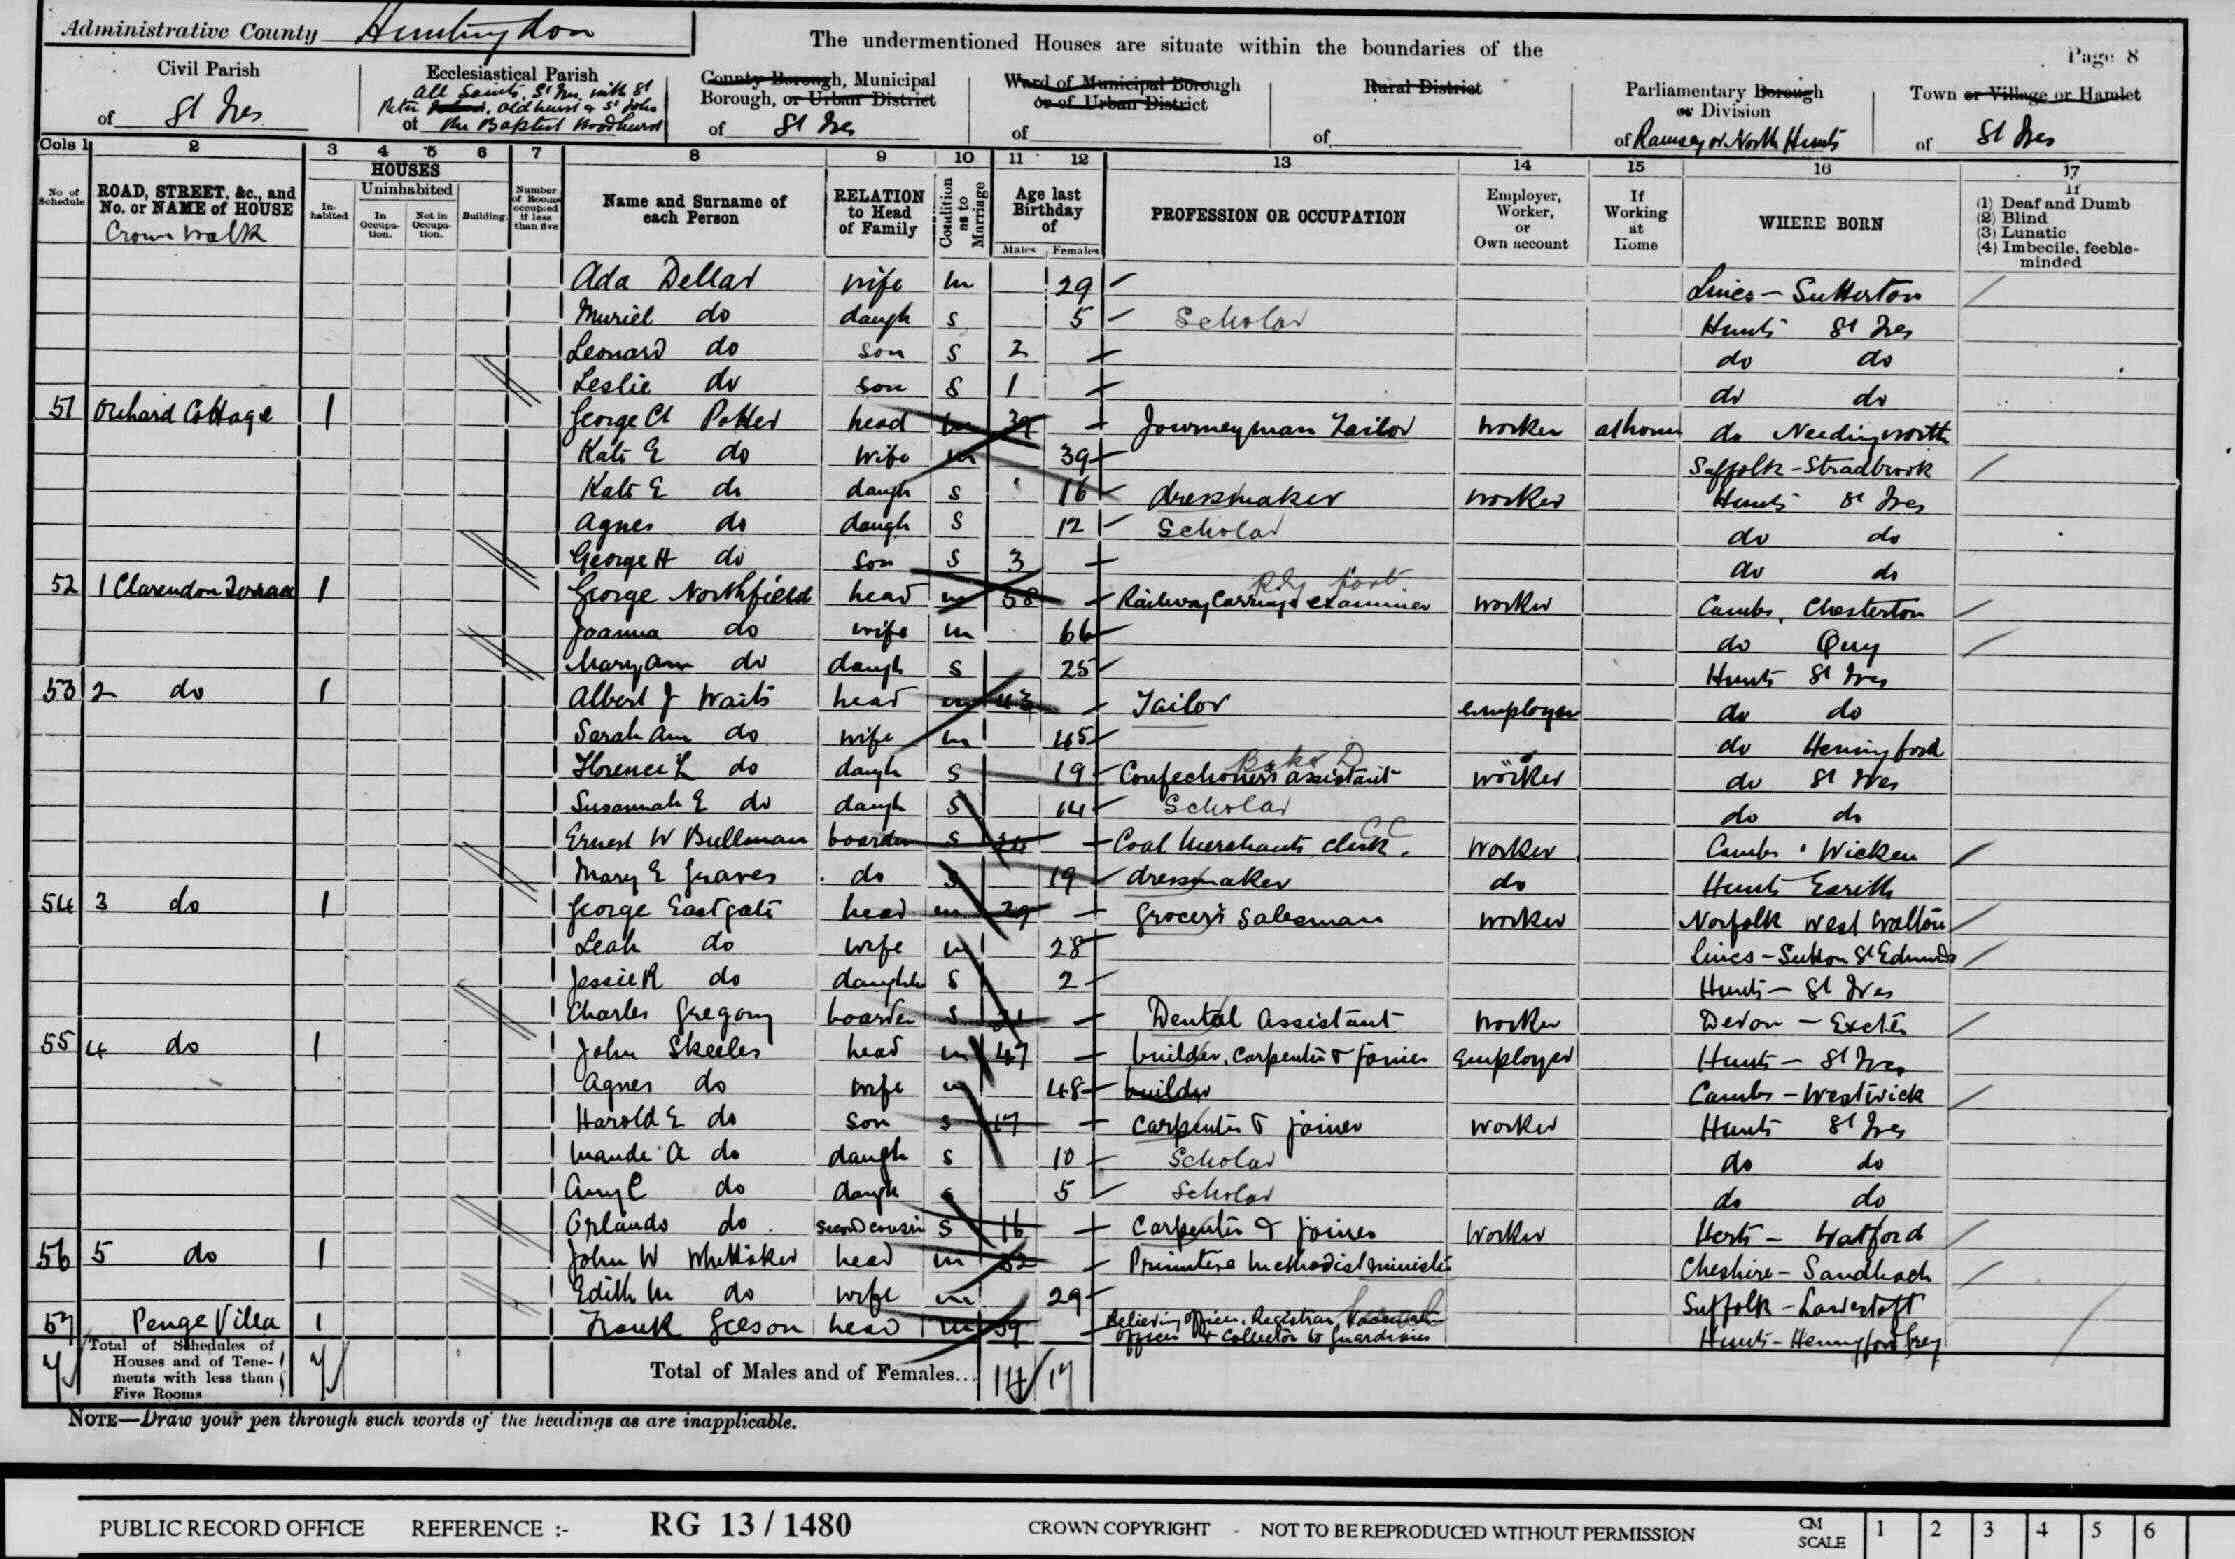 Administrative County Huntingdon
The undermentioned Houses are situate within the boundaries of the
Page 8
Civil Parish
of St Ives
Ecclesiastical Parish
All Saints, St Ives with St
Peter Oldhurst & St John
of the Baptist Woodhurst
County Borough, Municipal
Borough, or Urban District
of St Ives
Ward of Municipal Borough
or of Urban District
of
Rural District
of
Parliamentary Borough
or Division
of Ramsey or North Hunts
Town or Village or Hamlet
of St Ives
Cols 1 2 3 4 5 6 7 8 9 10 11 12 13 14 15 16 17
No of Schedule
ROAD, STREET, &c., and No. or NAME of HOUSE
Crown Walk
HOUSES
Inhabited
Uninhabited
In Occupation.
Not in Occupation.
Building.
Number of Rooms occupied if less than five
Name and Surname of each Person
RELATION to Head of Family
Condition as to Marriage
Age last Birthday of
Males Females
PROFESSION OR OCCUPATION
Employer, Worker, or Own account
If Working at Home
WHERE BORN
If
(1) Deaf and Dumb
(2) Blind
(3) Lunatic
(4) Imbecile, feeble-minded
Ada Dellar wife m 29 Lincs - Sutterton
Muriel do daugh s 5 Scholar Hunts St Ives
Leonard do son s 2 do do
Leslie do son s 1 do do
51 Orchard Cottage 1 George A Potter head m 39 Journeyman Tailor worker at home do Needingworth
Kate E do wife m 39 Suffolk - Stradbrook
Kate E do daugh s 16 dressmaker worker Hunts St Ives
Agnes do daugh s 12 Scholar do do
George H do son s 3 do do
52 1 Clarendon Terrace 1 George Northfield head m 58 Railway Carriage examiner worker Cambs, Chesterton
Joanna do wife m 66 do Quy
Mary Ann do daugh s 25 Hunts St Ives
53 2 do 1 Albert J Waits head m 43 Tailor employer do do
Sarah Ann do wife m 45 do Hemingford
Florence L do daugh s 19 Confectioners assistant worker do St Ives
Susannah E do daugh s 14 Scholar do do
Ernest W Bullman boarder s Coal Merchants clerk. worker Cambs Wicken
Mary E Graves do s 19 dressmaker do Hunts Earith
54 3 do 1 George Eastgate head m 29 Grocer's Salesman worker Norfolk West Walton
Leah do wife m 28 Lincs - Sutton St Edmunds
Jessie R do daughter s 2 Hunts - St Ives
Charles Gregory boarder s 21 Dental Assistant worker Devon - Exeter
55 4 do 1 John Skeeles head m 47 builder, carpenter & joiner Employer Hunts - St Ives
Agnes do wife m 48 builder Cambs - Westwick
Harold E do son s 17 carpenter & joiner worker Hunts St Ives
Maude A do daugh s 10 Scholar do do
Amy C do daugh s 5 Scholar do do
Orlando do second cousin s 16 carpenter & joiner worker Herts - Watford
56 5 do 1 John W Whittaker head m 32 Primitive Methodist minister Cheshire - Sandbach
Edith M do wife m 29 Suffolk - Lowestoft
57 Penge Villa 1 Frank Geeson head m 59 Relieving officer, Registrar,
officer & Collector to Guardians Hunts - Hemingford Grey
7 Total of Schedules of Houses and of Tenements with less than Five Rooms 7
Total of Males and of Females... 14 17
NOTE—Draw your pen through such words of the headings as are inapplicable.
PUBLIC RECORD OFFICE REFERENCE :- RG 13 / 1480
CROWN COPYRIGHT - NOT TO BE REPRODUCED WITHOUT PERMISSION
CM SCALE 1 2 3 4 5 6